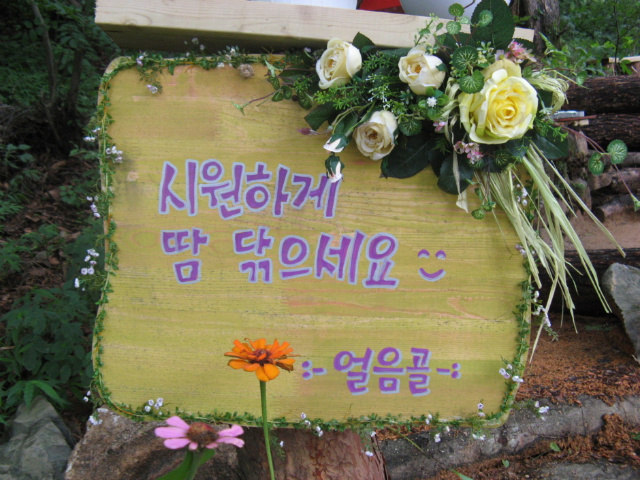 시원하게
땀 닦으세요
:- 얼음골 -: